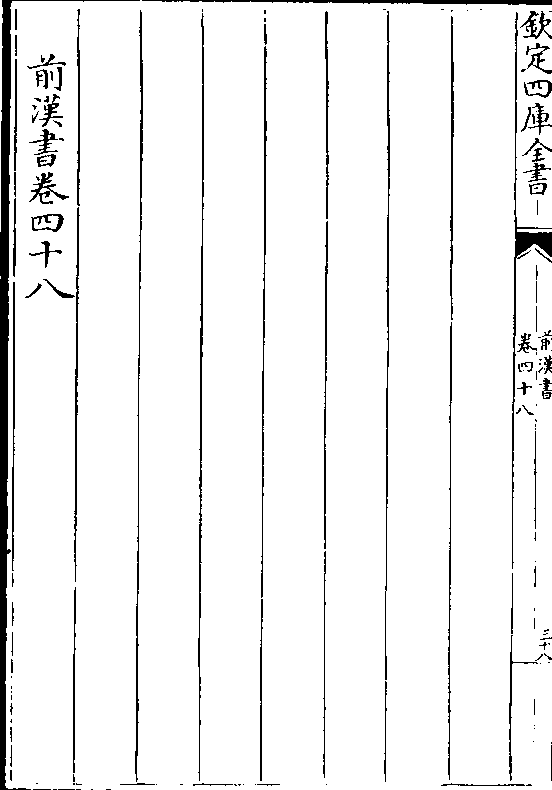 欽定四庫全書
前漢書
卷四十八
三十八
前漢書卷四十八